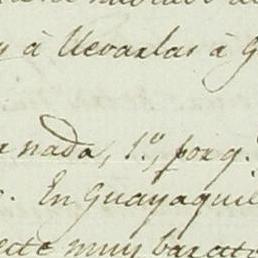 à llevarlas à G
nada, 1.º, porq.
En Guayaquil
muy barato